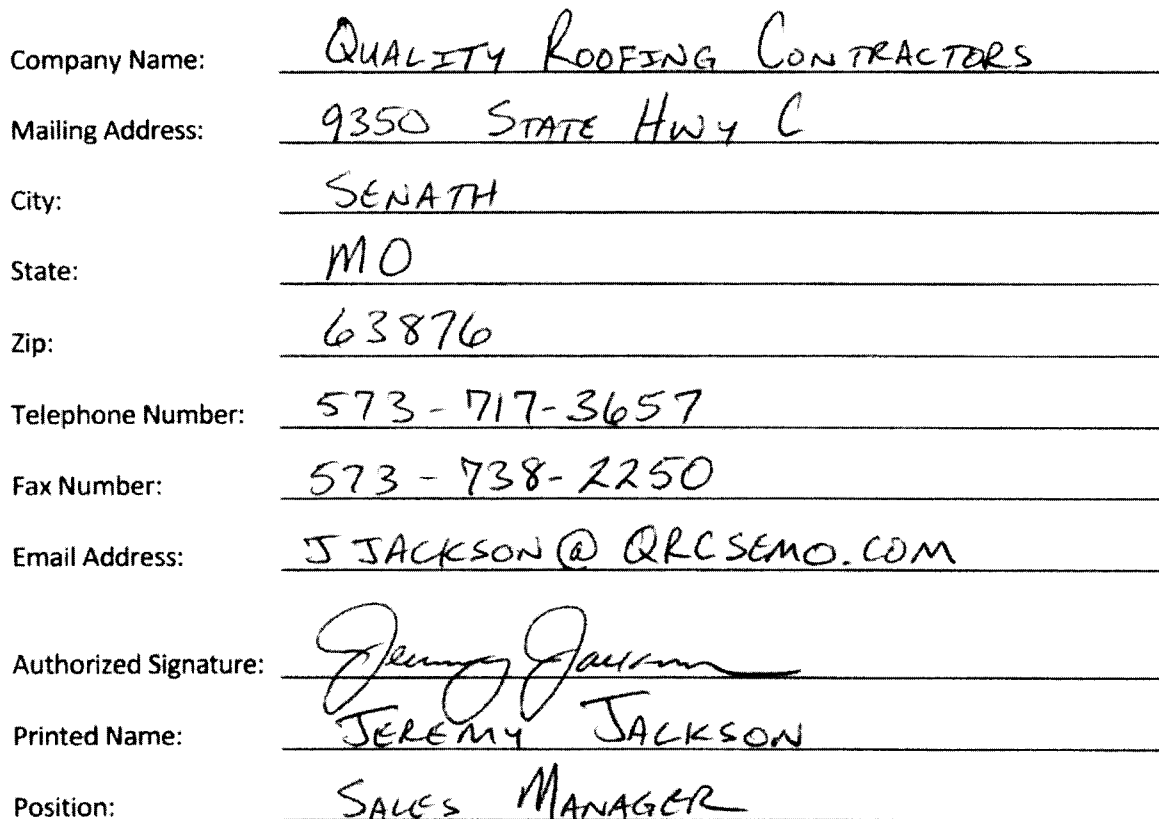 Company Name: QUALITY ROOFING CONTRACTORS
Mailing Address: 9350 STATE HWY C
City: SENATH
State: MO
Zip: 63876
Telephone Number: 573-717-3657
Fax Number: 573-738-2250
Email Address: JJACKSON@QRCSEMO.COM
Authorized Signature: Jeremy Jackson
Printed Name: JEREMY JACKSON
Position: SALES MANAGER